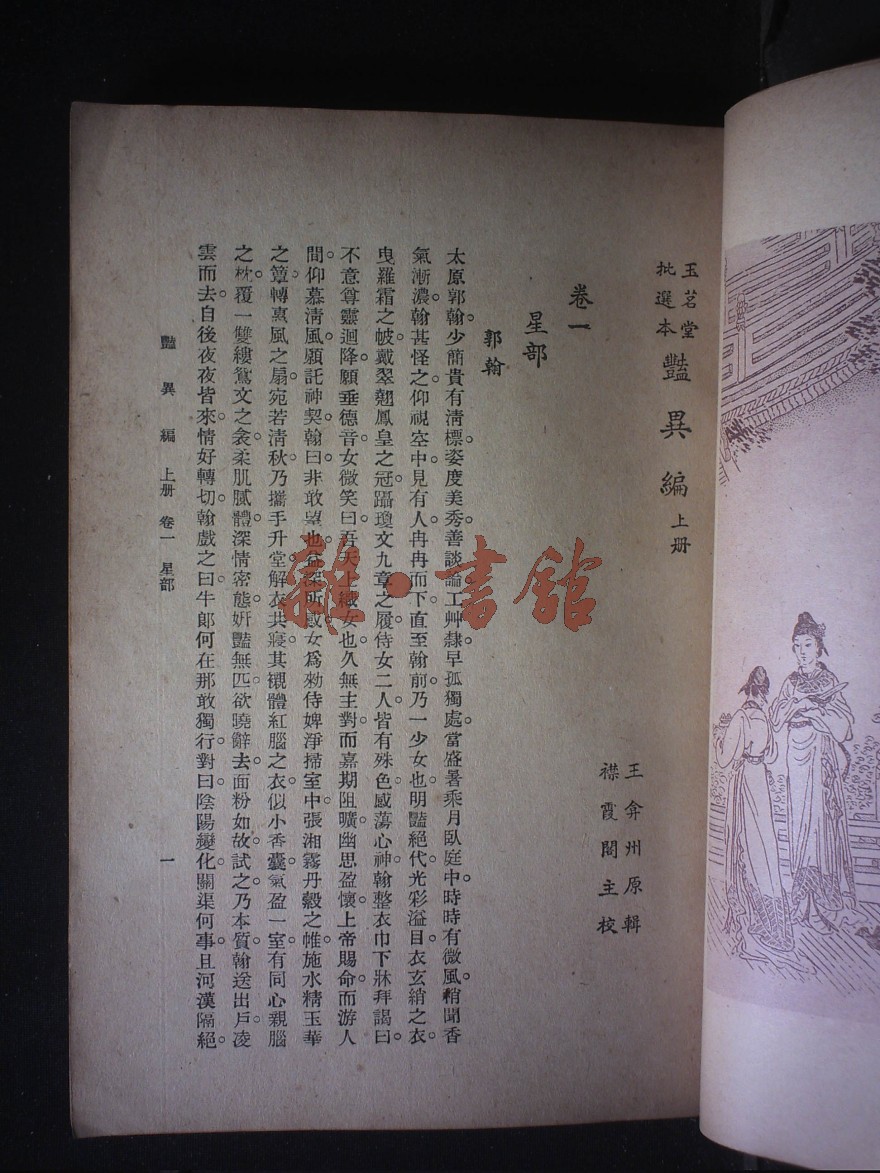 玉茗堂
批選本
豔異編 上册
王弇州原輯
襟霞閣主校
卷一
星部
郭翰
太原郭翰。少簡貴有淸標。姿度美秀。善談論。工艸隸。早孤獨處。當盛暑乘月臥庭中。時時有微風。稍聞香
氣漸濃。翰甚怪之。仰視空中。見有人冉冉而下。直至翰前。乃一少女也。明豔絕代。光彩溢目。衣玄綃之衣。
曳羅霜之帔。戴翠翹鳳皇之冠。躡瓊文九章之履。侍女二人。皆有殊色。感蕩心神。翰整衣巾下牀拜謁曰。
不意尊靈迴降。願垂德音。女微笑曰。吾天上織女也。久無主對。而嘉期阻曠。幽思盈懷。上帝賜命。而游人
間。仰慕淸風。願託神契。翰曰。非敢望也。益深所感。女爲勑侍婢淨掃室中。張湘霧丹縠之帷。施水精玉華
之簟。轉惠風之扇。宛若淸秋。乃攜手升堂。解衣共寢。其襯體紅腦之衣。似小香囊。氣盈一室。有同心親腦
之枕。覆一雙縷鴛文之衾。柔肌膩體。深情密態。姸豔無匹。欲曉辭去。面粉如故。試之。乃本質。翰送出戶。凌
雲而去。自後夜夜皆來。情好轉切。翰戲之曰。牛郞何在。那敢獨行。對曰。陰陽變化。關渠何事。且河漢隔絕。
豔異編 上册 卷一 星部 一
雜·書館